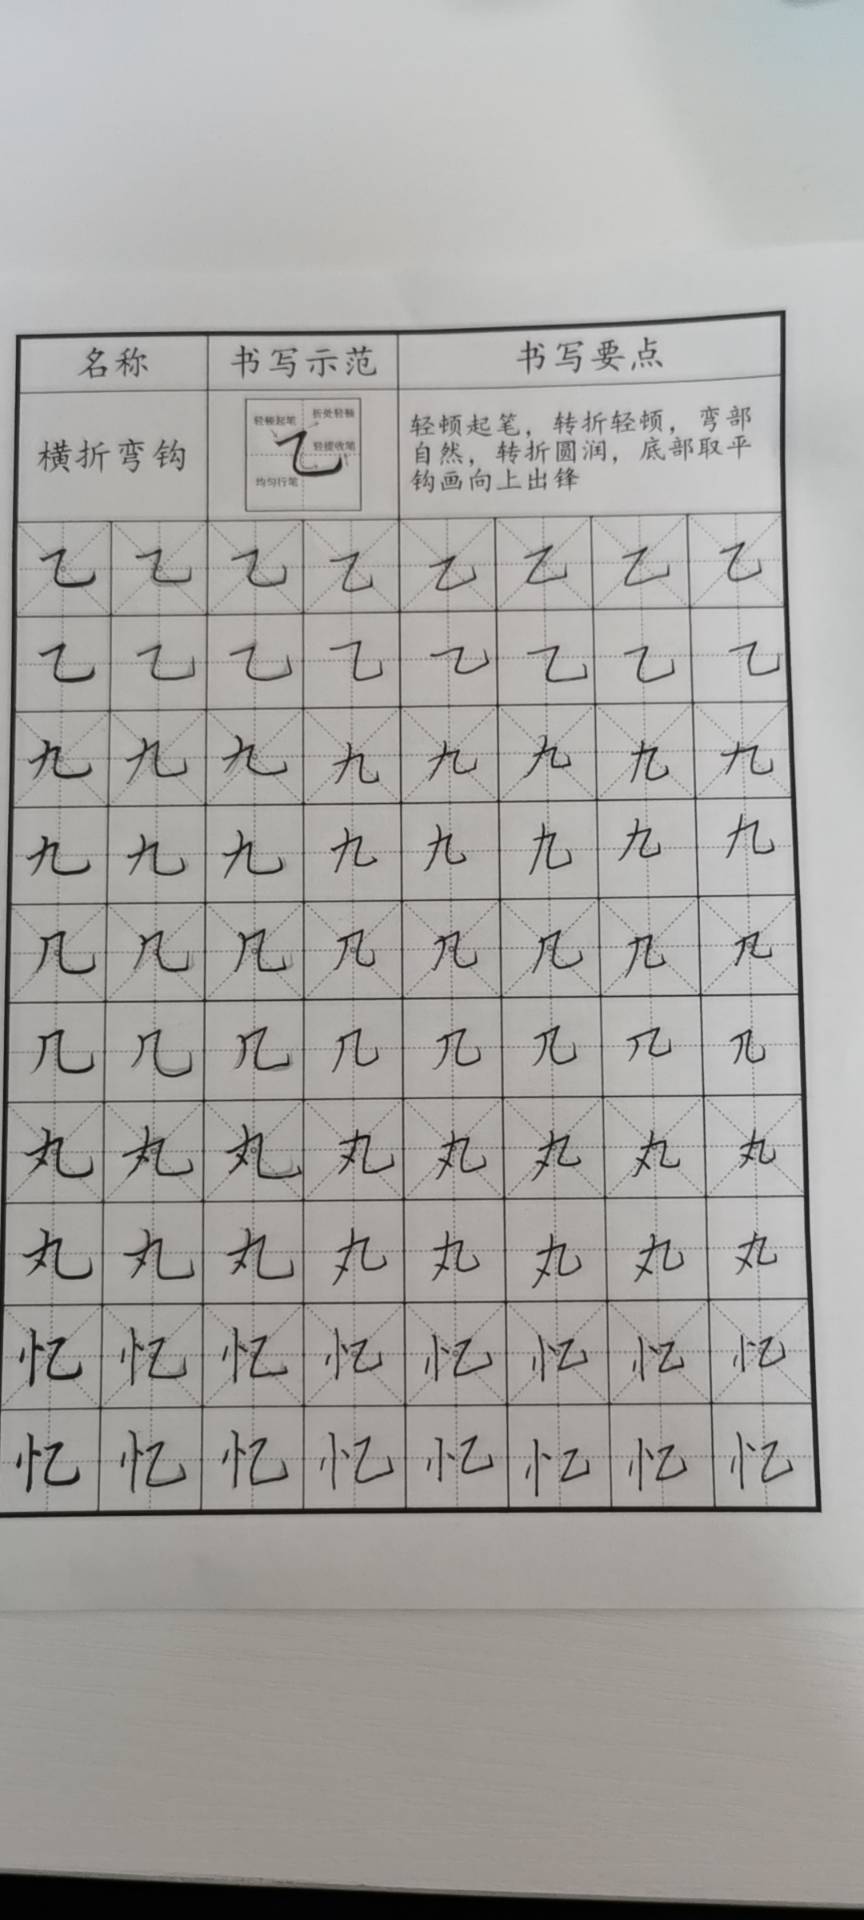 名称 书写示范 书写要点
横折弯钩
轻顿起笔 折处轻顿
轻提收笔
均匀行笔
轻顿起笔，转折轻顿，弯部
自然，转折圆润，底部取平
钩画向上出锋
乙 乙 乙 乙 乙 乙 乙 乙
乙 乙 乙 乙 乙 乙 乙 乙
九 九 九 九 九 九 九 九
九 九 九 九 九 九 九 九
几 几 几 几 几 几 几 几
几 几 几 几 几 几 几 几
丸 丸 丸 丸 丸 丸 丸 丸
丸 丸 丸 丸 丸 丸 丸 丸
忆 忆 忆 忆 忆 忆 忆 忆
忆 忆 忆 忆 忆 忆 忆 忆